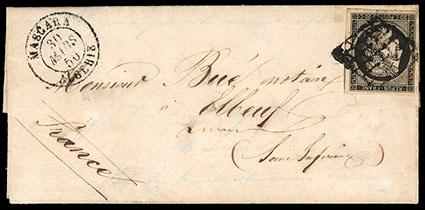 MASCARA
30
MARS
50
ALGERIE
Monsieur Bué notaire
à Elbeuf
(Seine Inferieure)
France